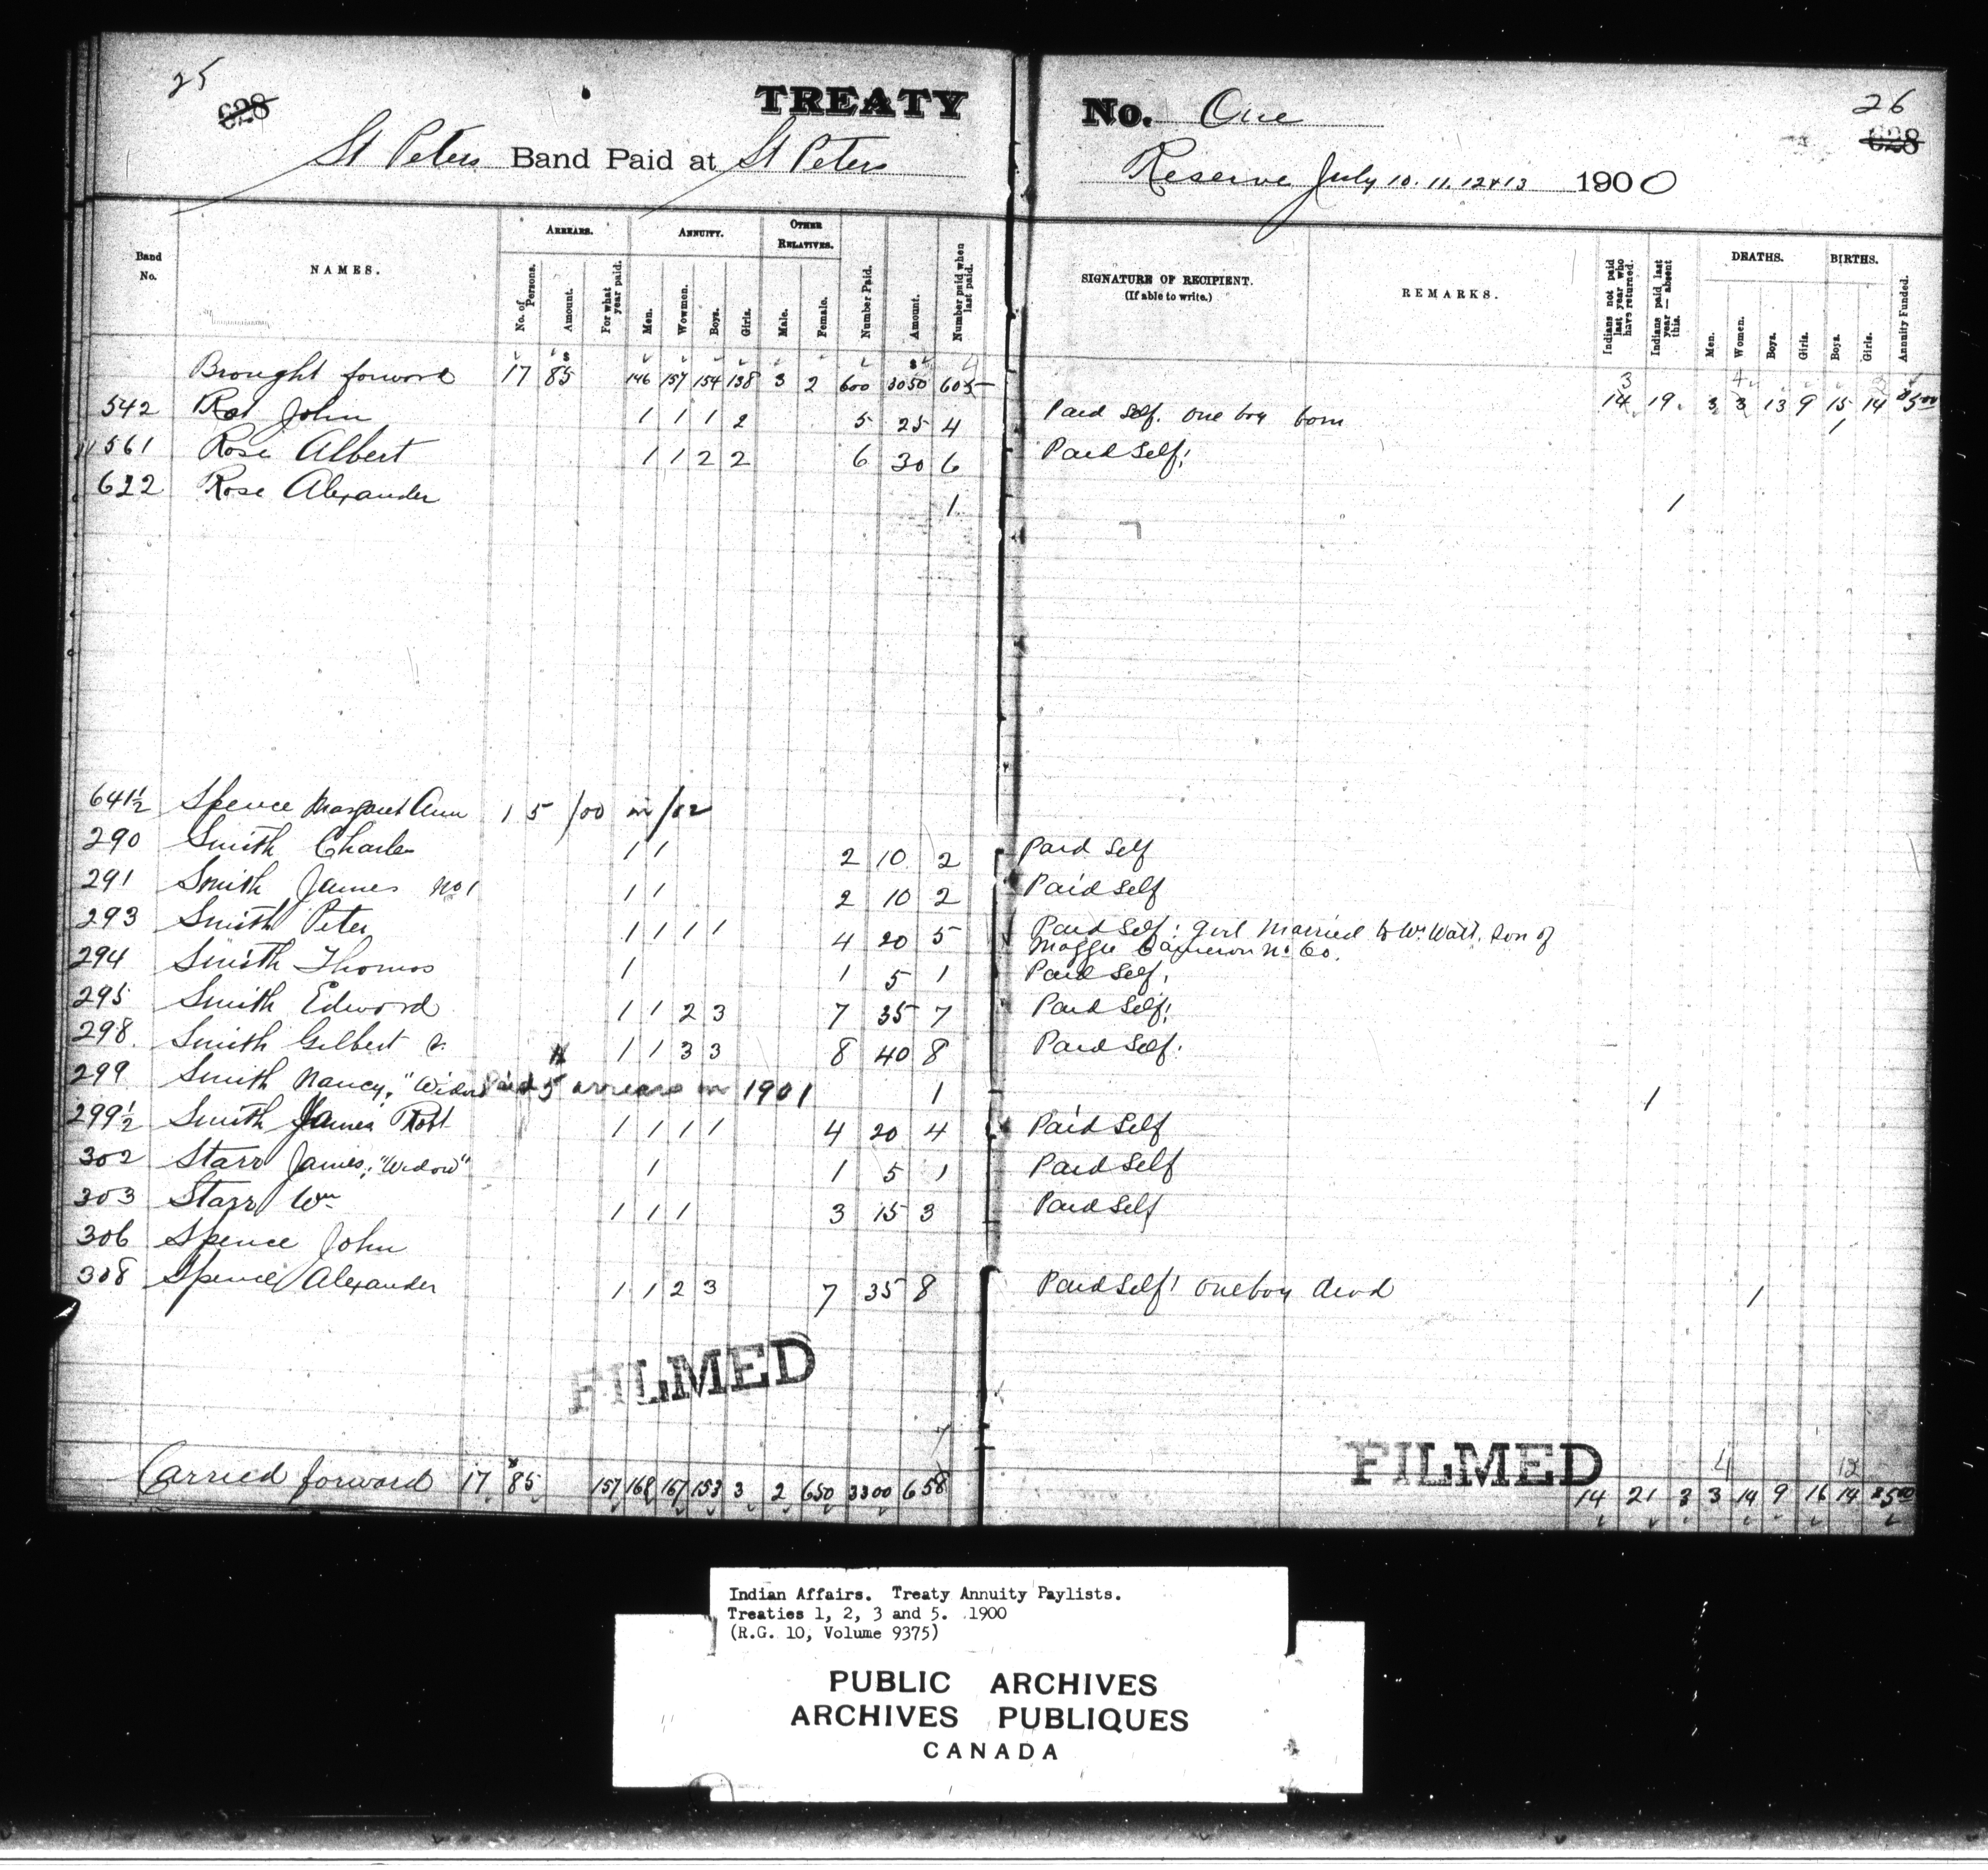 25
628
TREATY No. One
26
628
St Peters Band Paid at St Peters Reserve July 10. 11. 12 & 13 1900
Band No.
NAMES.
ARREARS.
No. of Persons.
Amount.
For what year paid.
ANNUITY.
Men.
Wowmen.
Boys.
Girls.
OTHER RELATIVES.
Male.
Female.
Number Paid.
Amount.
Number paid when last paid.
SIGNATURE OF RECIPIENT.
(If able to write.)
REMARKS.
Indians not paid last year who have returned.
Indians paid last year — absent this.
DEATHS.
Men.
Women.
Boys.
Girls.
BIRTHS.
Boys.
Girls.
Annuity Funded.
Brought forword 17 85 146 157 154 138 3 2 600 3050 605 14 19 3 3 13 9 15 14 $5.00
542 Rat John 1 1 1 2 5 25 4 Paid Self. one boy born 1
561 Rose Albert 1 1 2 2 6 30 6 Paid Self!
622 Rose Alexander 1 1
641½ Spence Margaret Ann 1 5 /00 in /02
290 Smith Charles 1 1 2 10 2 Paid Self
291 Smith James No 1 1 1 2 10 2 Paid Self
293 Smith Peter 1 1 1 1 4 20 5 Paid Self! girl Married to Wm Watt. Son of
Maggie Cameron No 60.
294 Smith Thomas 1 1 5 1 Paid Self,
295 Smith Edword 1 1 2 3 7 35 7 Paid Self!
298. Smith Gilbert 1 1 3 3 8 40 8 Paid Self.
299 Smith Nancy, "Widow" Paid 5 arrears in 1901 1 1
299½ Smith James Robt 1 1 1 1 4 20 4 Paid Self
302 Starr James, "Widow" 1 1 5 1 Paid Self
303 Starr Wm 1 1 1 3 15 3 Paid Self
306 Spence John
308 Spence Alexander 1 1 2 3 7 35 8 Paid Self! one boy dead 1
FILMED
FILMED
4 12
Carried forward 17 $85 157 168 167 153 3 2 650 3300 658 14 21 3 3 14 9 16 14 $5.00
Indian Affairs. Treaty Annuity Paylists.
Treaties 1, 2, 3 and 5. 1900
(R.G. 10, Volume 9375)
PUBLIC ARCHIVES
ARCHIVES PUBLIQUES
CANADA